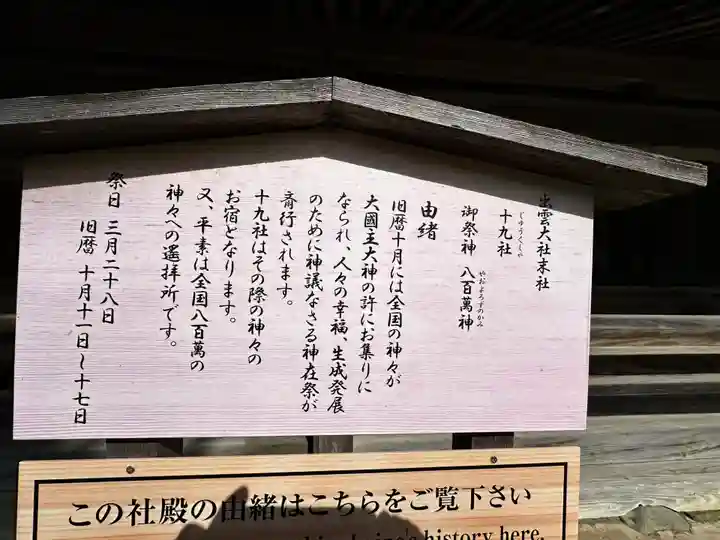 出雲大社末社
十九社
じゅうくしゃ
御祭神 八百萬神
やおよろずのかみ
由緒
旧暦十月には全国の神々が
大國主大神の許にお集りに
なられ、人々の幸福、生成発展
のために神議なさる神在祭が
斎行されます。
十九社はその際の神々の
お宿となります。
又、平素は全国八百萬の
神々への遙拝所です。
祭日 三月二十八日
旧暦 十月十一日~十七日
この社殿の由緒はこちらをご覧下さい
history here.